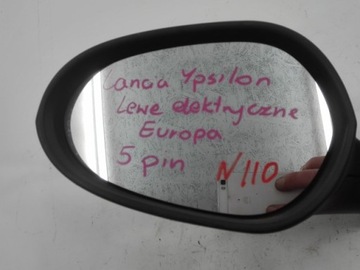 Lancia Ypsilon
Lewe elektryczne
Europa
5 pin
N110